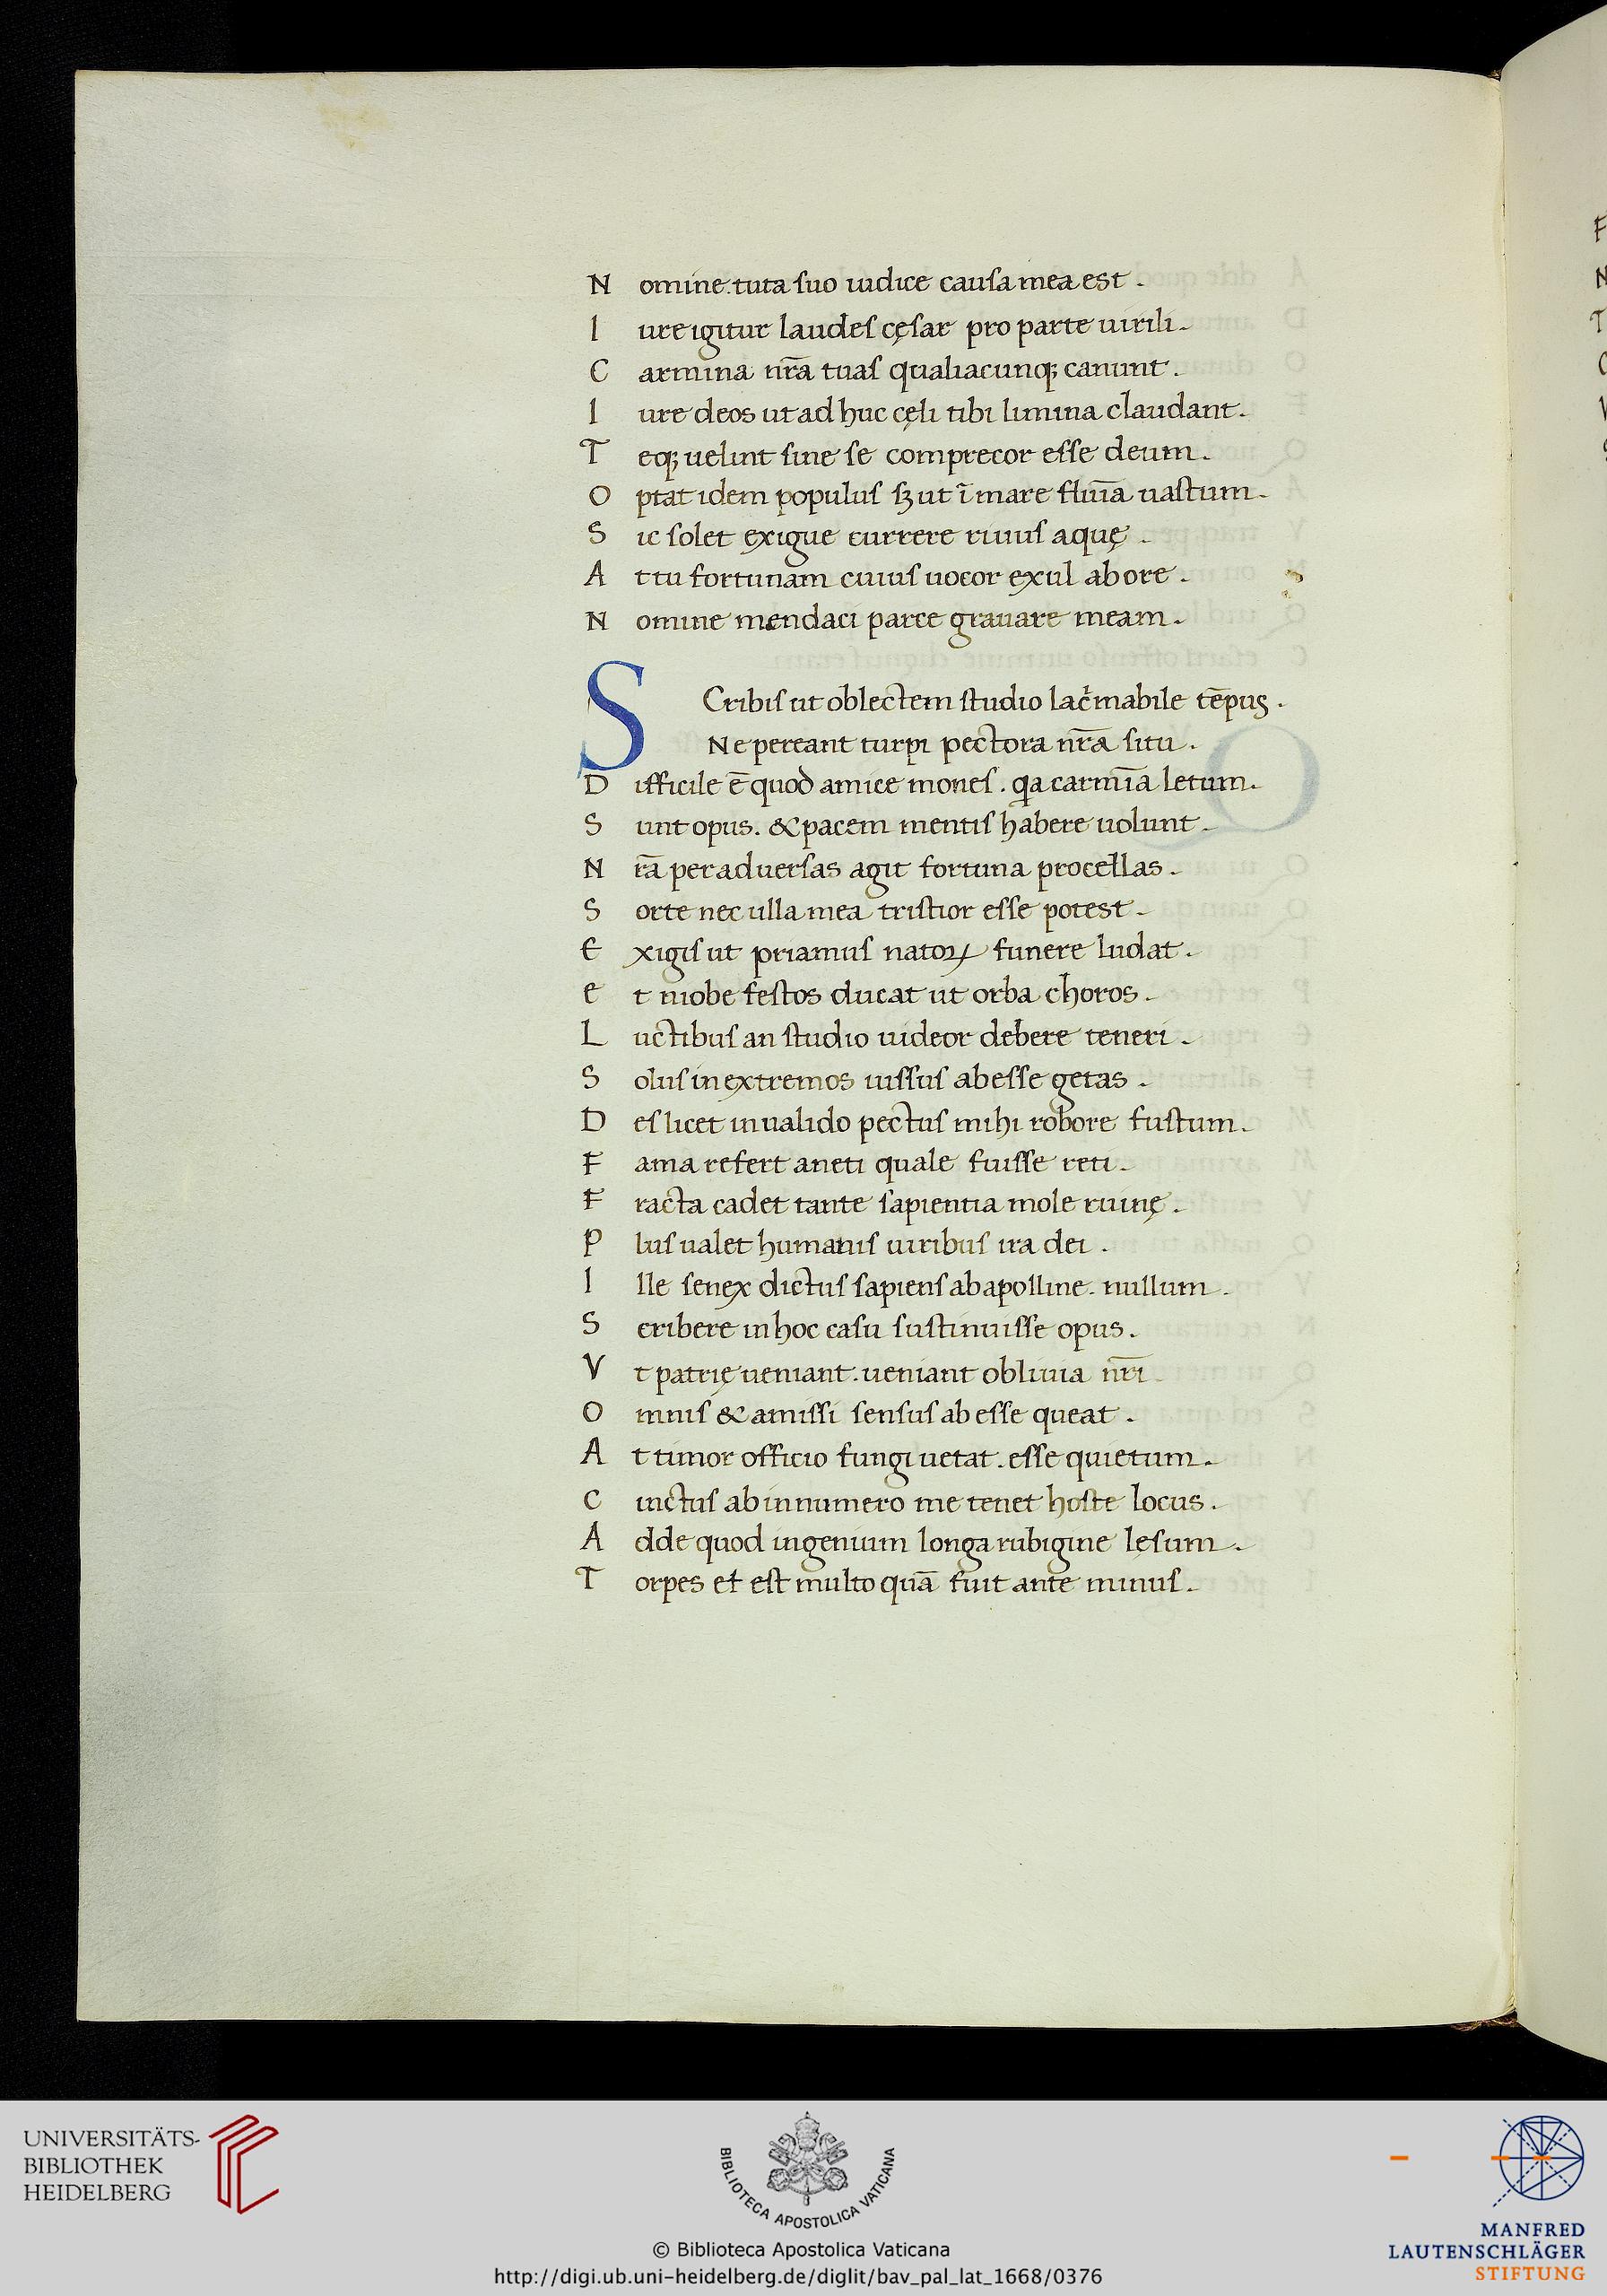 N omine tuta suo iudice causa mea est .
I ure igitur laudes cęsar pro parte uirili .
C armina nr̄a tuas qualiacunq; canunt .
I ure deos ut adhuc cęli tibi limina claudant .
T eq; uelint sine se comprecor esse deum .
O ptat idem populus sꝫ ut ī mare flumīa uastum .
S ic solet exigue currere riuus aquę .
A t tu fortunam cuius uocor exul ab ore .
N omine mendaci parce grauare meam .
S Cribis ut oblectem studio lac̄mabile tēpus .
Ne pereant turpi pectora nr̄a situ .
D ifficile ē quod amice mones . qa carmīa letum .
S unt opus . & pacem mentis habere uolunt .
N r̄a per aduersas agit fortuna procellas .
S orte nec ulla mea tristior esse potest .
E xigis ut priamus natoꝝ funere ludat .
e t niobe festos ducat ut orba choros .
L uctibus an studio uideor debere teneri .
S olus in extremos iussus abesse getas .
D es licet inualido pectus mihi robore fustum .
F ama refert aneti quale fuisse reti .
F racta cadet tante sapientia mole ruinę .
P lus ualet humanis uiribus ira dei .
I lle senex dictus sapiens ab apolline . nullum .
S cribere in hoc casu sustinuisse opus .
V t patrię ueniant . ueniant obliuia nr̄i .
O mnis & amissi sensus abesse queat .
A t timor officio fungi uetat . esse quietum .
C inctus ab innumero me tenet hoste locus .
A dde quod ingenium longa rubigine lęsum .
T orpet et est multo quā fuit ante minus .
UNIVERSITÄTS-
BIBLIOTHEK
HEIDELBERG
BIBLIOTECA APOSTOLICA VATICANA
© Biblioteca Apostolica Vaticana
http://digi.ub.uni-heidelberg.de/diglit/bav_pal_lat_1668/0376
MANFRED
LAUTENSCHLÄGER
STIFTUNG